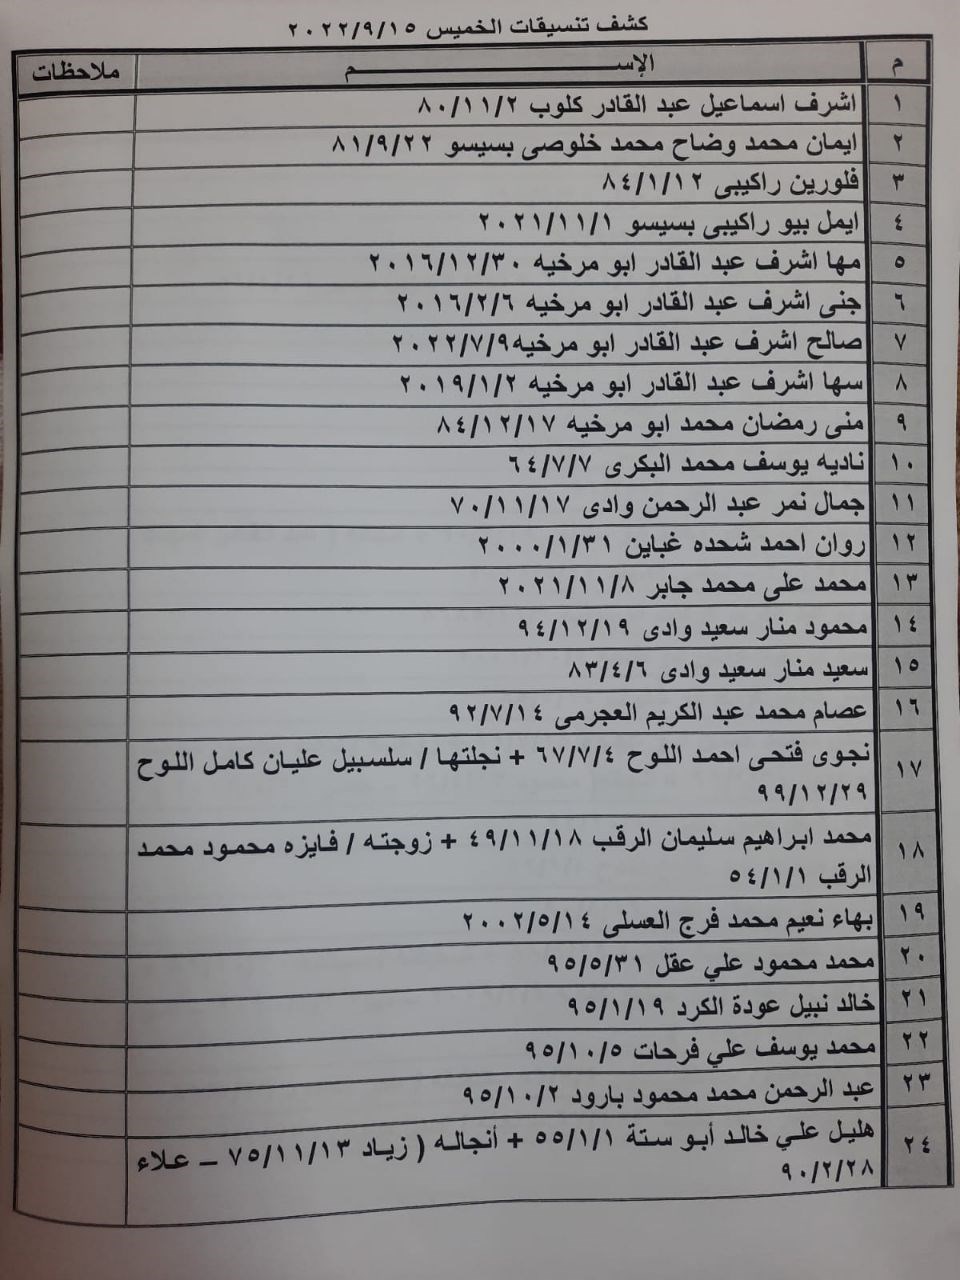 كشف تنسيقات الخميس ٢٠٢٢/٩/١٥
م الإســـــــــــم ملاحظات
١ اشرف اسماعيل عبد القادر كلوب ٨٠/١١/٢
٢ ايمان محمد وضاح محمد خلوصى بسيسو ٨١/٩/٢٢
٣ فلورين راكيبى ٨٤/١/١٢
٤ ايمل بيو راكيبى بسيسو ٢٠٢١/١١/١
٥ مها اشرف عبد القادر ابو مرخيه ٢٠١٦/١٢/٣٠
٦ جنى اشرف عبد القادر ابو مرخيه ٢٠١٦/٢/٦
٧ صالح اشرف عبد القادر ابو مرخيه٢٠٢٢/٧/٩
٨ سها اشرف عبد القادر ابو مرخيه ٢٠١٩/١/٢
٩ منى رمضان محمد ابو مرخيه ٨٤/١٢/١٧
١٠ ناديه يوسف محمد البكرى ٦٤/٧/٧
١١ جمال نمر عبد الرحمن وادى ٧٠/١١/١٧
١٢ روان احمد شحده غباين ٢٠٠٠/١/٣١
١٣ محمد على محمد جابر ٢٠٢١/١١/٨
١٤ محمود منار سعيد وادى ٩٤/١٢/١٩
١٥ سعيد منار سعيد وادى ٨٣/٤/٦
١٦ عصام محمد عبد الكريم العجرمى ٩٢/٧/١٤
١٧ نجوى فتحى احمد اللوح ٦٧/٧/٤ + نجلتها / سلسبيل عليان كامل اللوح
٩٩/١٢/٢٩
١٨ محمد ابراهيم سليمان الرقب ٤٩/١١/١٨ + زوجته / فايزه محمود محمد
الرقب ٥٤/١/١
١٩ بهاء نعيم محمد فرج العسلى ٢٠٠٢/٥/١٤
٢٠ محمد محمود علي عقل ٩٥/٥/٣١
٢١ خالد نبيل عودة الكرد ٩٥/١/١٩
٢٢ محمد يوسف علي فرحات ٩٥/١٠/٥
٢٣ عبد الرحمن محمد محمود بارود ٩٥/١٠/٢
٢٤ هليل علي خالد أبو ستة ٥٥/١/١ + أنجاله ( زياد ٧٥/١١/١٣ – علاء
٩٠/٢/٢٨